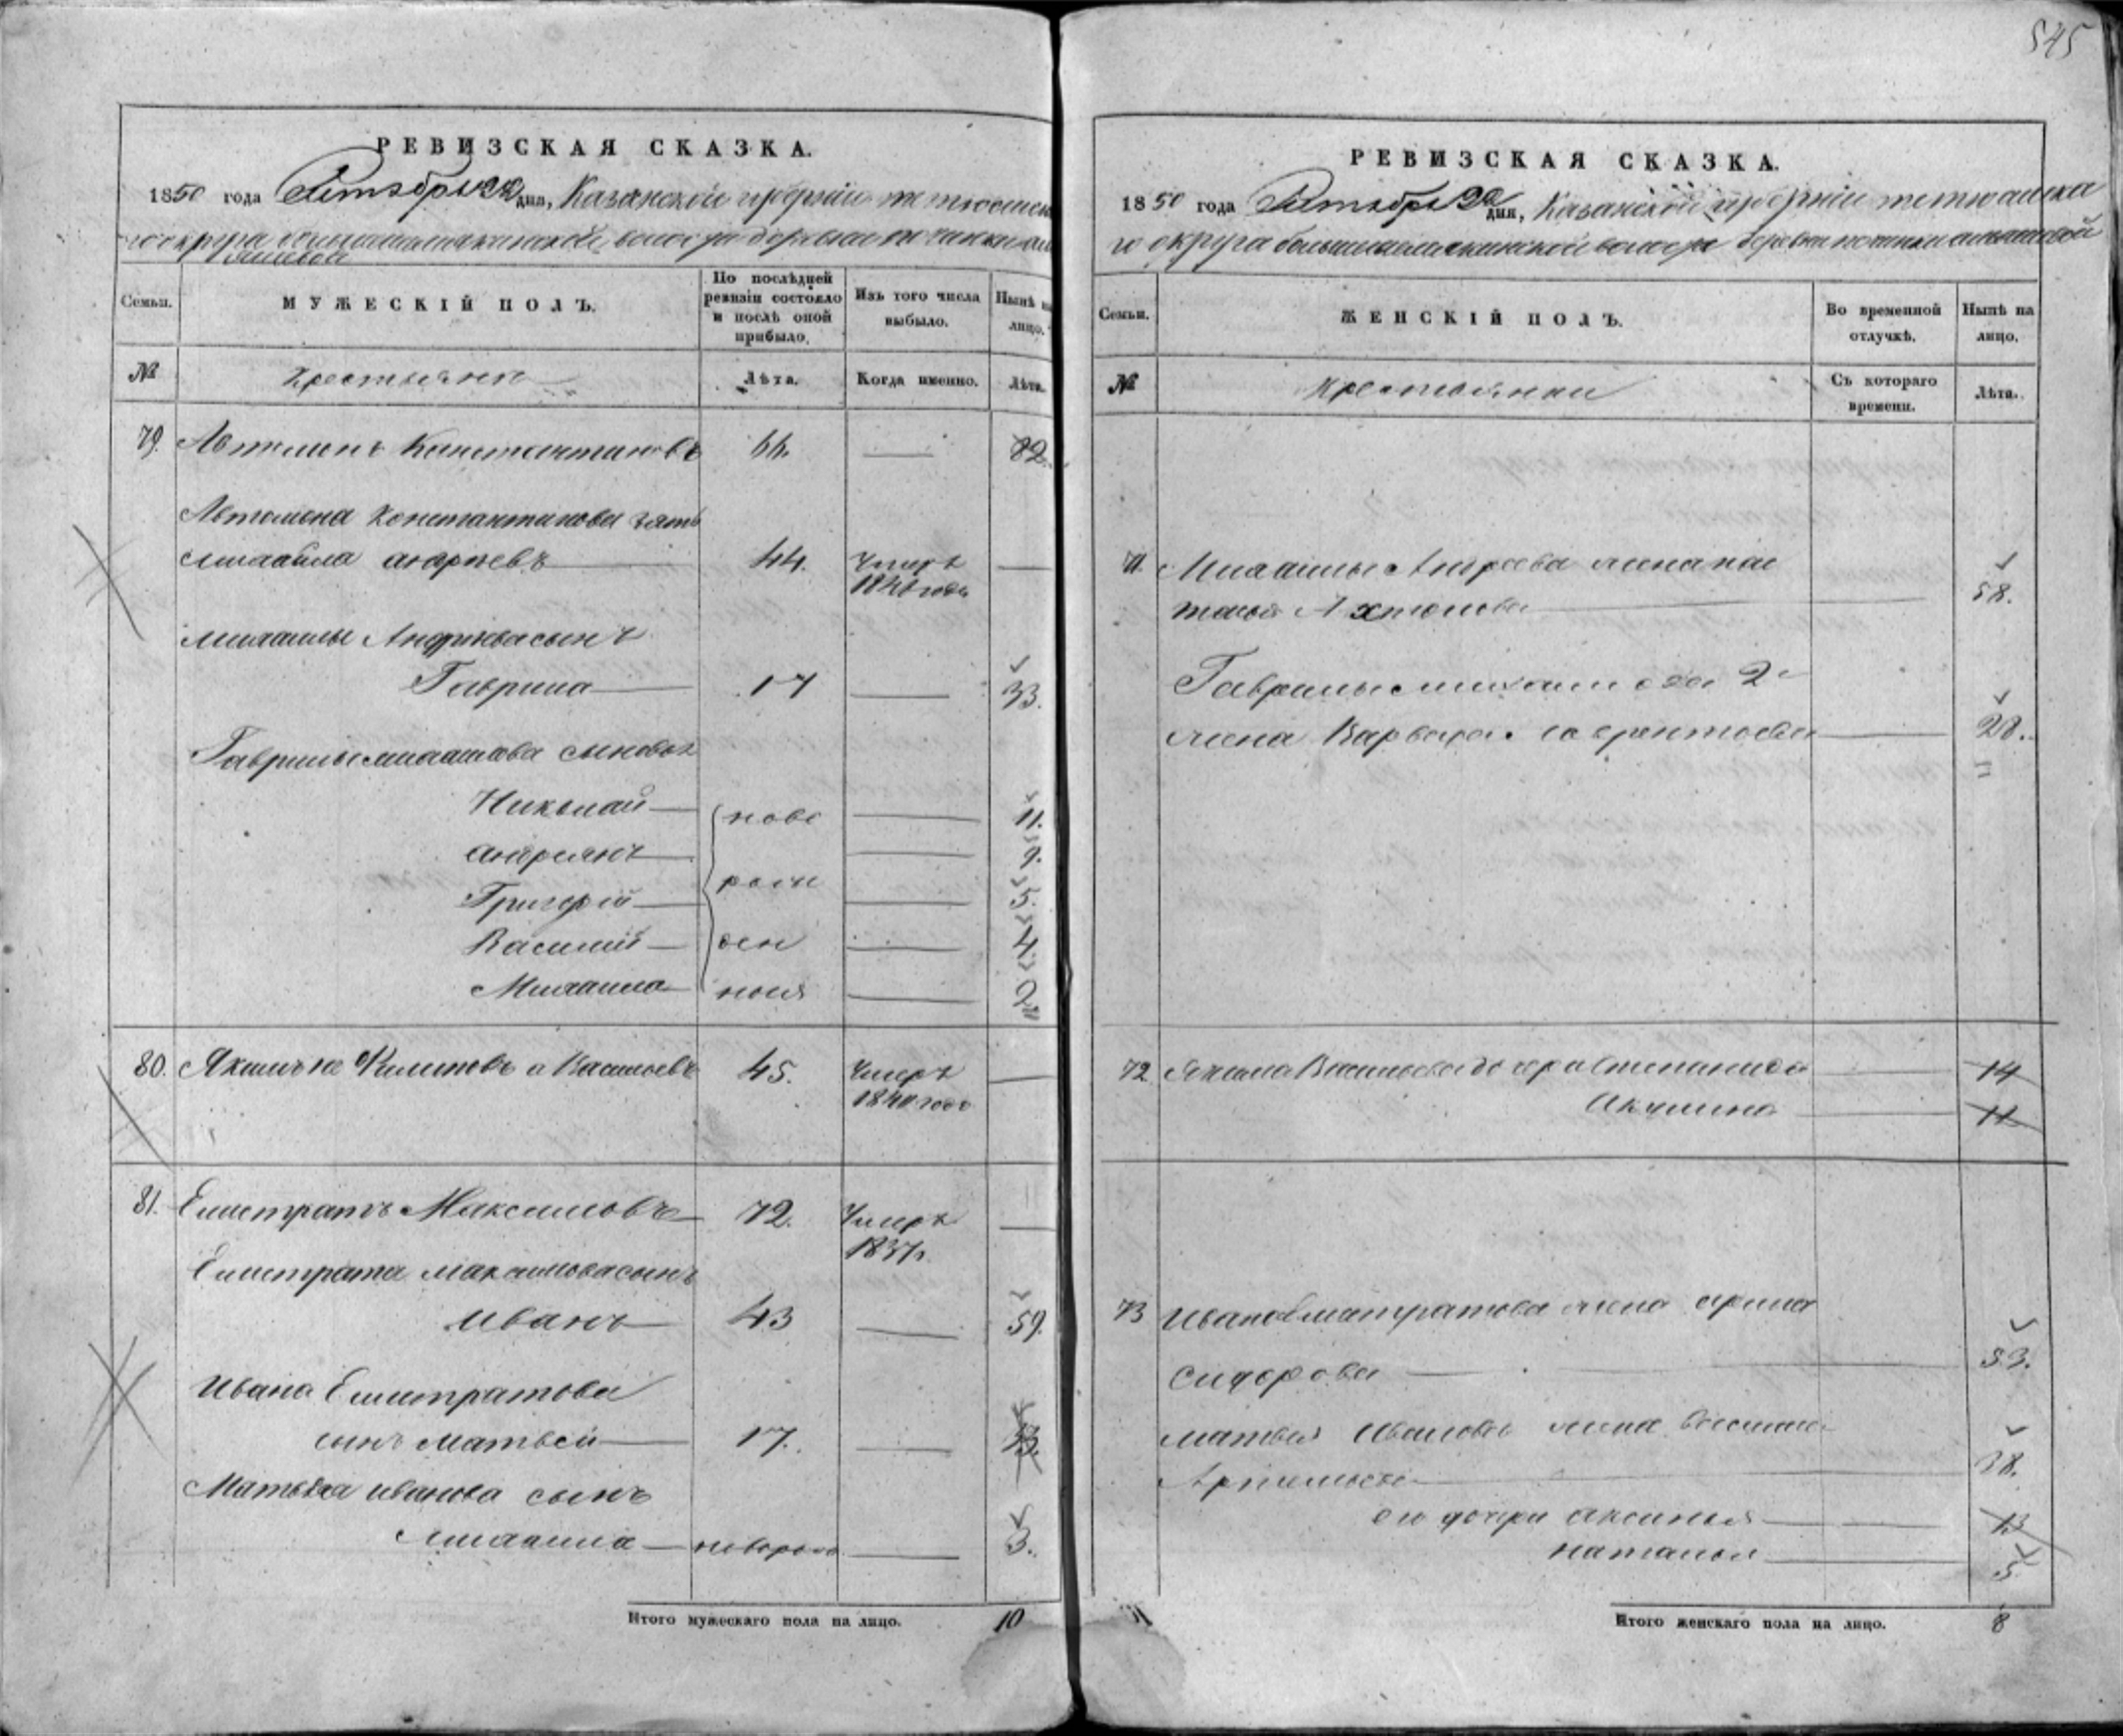 545
РЕВИЗСКАЯ СКАЗКА.
1850 года Октября дня, Казанской губернии тетюшска
го округа волости деревни починки
Семьи.
МУЖЕСКІЙ ПОЛЪ.
По послѣдней ревизіи состояло и послѣ оной прибыло.
Изъ того числа выбыло.
Нынѣ на лицо.
№
Крестьяне
Лѣта.
Когда именно.
Лѣта.
79. Автомонъ Константиновъ 66. — 82.
Автомона Константинова зять
Михайла андреевъ 44. Умеръ —
года
Михайлы Андреева сынъ
Гаврила 17 — 33.
Гаврилы михайлова сыновья
Николай ново — 11.
андреянъ — 9.
Григорій рож — 5.
Василий ден — 4.
Михайла ныя — 2
80. Якимъ Филиповъ Васильевъ 45. Умеръ —
1840 года
81. Елистратъ Максимовъ 72. Умеръ —
1837.
Елистрата максимова сынъ
Иванъ 43 — 59.
Ивана Елистратова
сынъ матвей 17. — 33.
Матвея иванова сынъ
михаила — новорож — 3.
Итого мужескаго пола на лицо. 10
РЕВИЗСКАЯ СКАЗКА.
1850 года Октября дня, Казанской губернии тетюшска
го округа волости деревни починки
Семьи.
ЖЕНСКІЙ ПОЛЪ.
Во временной отлучкѣ.
Нынѣ на лицо.
№
Крестьянки
Съ котораго времени.
Лѣта.
71. Михайлы Андреева жена на
талья — 58.
Гаврилы михайлова 2я
жена Варвара — 28.
72 Якима Васильева дочери Степанида — 14
Акулина — 11
73 Ивана Елистратова жена арина
сидорова — 53.
матвея Иванова жена
Артемьева — 38.
его дочери аксинья — 13
наталья — 5
Итого женскаго пола на лицо. 8